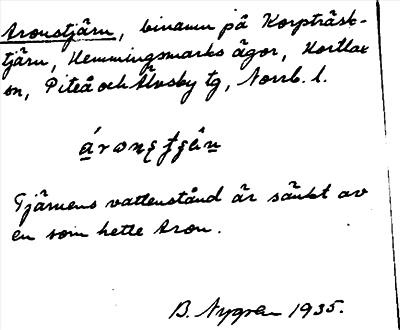 Aronstjärn, binamn på Korpträsk-
tjärn, Hemmingsmarks ägor, Hortlax
sn, Piteå och Älvsby tg, Norrb. l.
Tjärnens vattenstånd är sänkt av
en som hette Aron.
B. Nygren 1935.